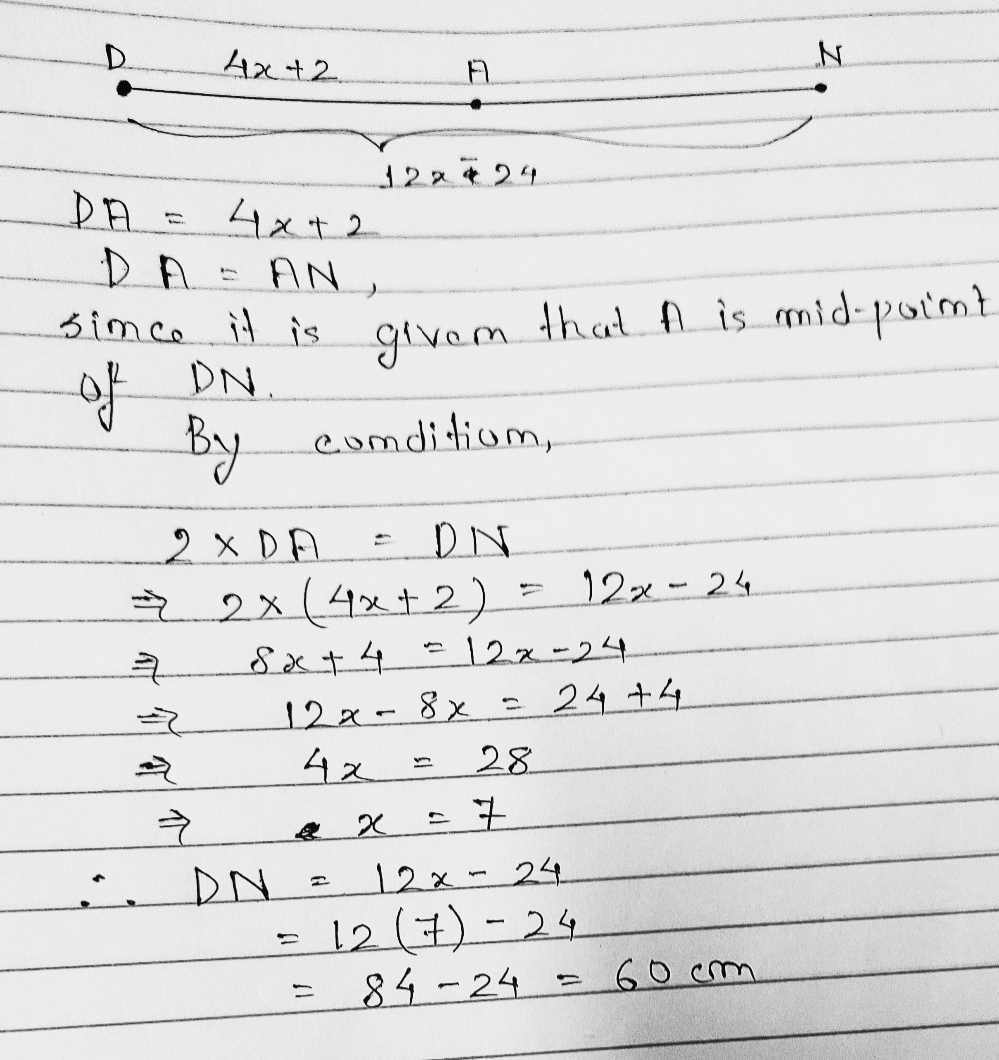 D 4x+2 A N
12x-24
DA = 4x+2
DA = AN,
since it is given that A is mid-point
of DN.
By condition,
2 × DA = DN
⇒ 2×(4x+2) = 12x-24
⇒ 8x+4 = 12x-24
⇒ 12x-8x = 24+4
⇒ 4x = 28
⇒ x = 7
∴ DN = 12x-24
= 12(7)-24
= 84-24 = 60 cm